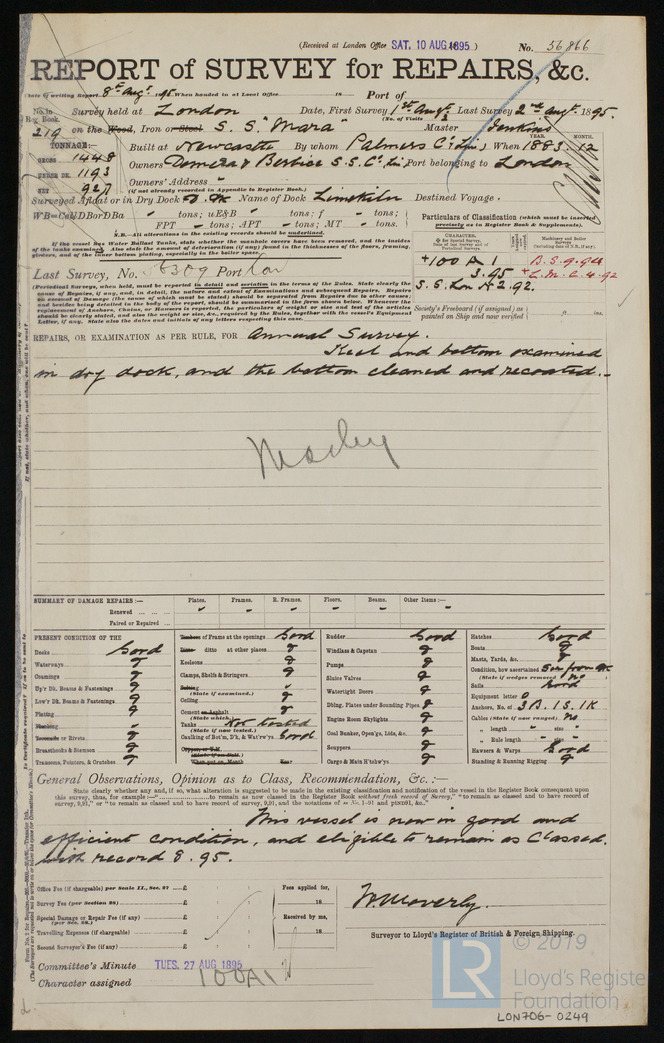 (Received at London Office SAT. 10 AUG 1895 ) No. 56866
REPORT of SURVEY for REPAIRS, &c.
Date of writing Report 8th Augt. 1895 When handed in at Local Office 18 Port of
No. in Reg. Book. Survey held at London Date, First Survey 1st Augt. Last Survey 2nd Augt. 1895.
(No. of Visits 2
219 on the Wood, Iron or Steel S. S. "Mara" Master Jenkins
TONNAGE:— Built at Newcastle By whom Palmers Co. Lim. When 1883. 12
YEAR. MONTH.
GROSS 1448
UNDER DK. 1193 Owners Demerara & Berbice S. S. Co. Lim Port belonging to London
NET 927 Owners' Address
(if not already recorded in Appendix to Register Book.)
Surveyed Afloat or in Dry Dock D. Dk Name of Dock Limekiln Destined Voyage
WB=CellDBorDBa " tons; uE&B " tons; f " tons;
FPT " tons; APT " tons; MT " tons.
N.B.—All alterations in the existing records should be underlined.
If the vessel has Water Ballast Tanks, state whether the manhole covers have been removed, and the insides
of the tanks examined. Also state the amount of deterioration (if any) found in the thicknesses of the floors, framing,
girders, and of the inner bottom plating, especially in the boiler space.
Particulars of Classification (which must be inserted
precisely as in Register Book & Supplements).
CHARACTER.
Machinery and Boiler Surveys
+100 A 1 B.S. 9.94
3.95 +L.M.C. 4.92
S. S. Lon No 2.92.
Society's Freeboard (if assigned) as
painted on Ship and now verified ft. ins.
Last Survey, No. 56309 Port Lon
(Periodical Surveys, when held, must be reported in detail and seriatim in the terms of the Rules. State clearly the
cause of Repairs, if any, and, in detail, the nature and extent of Examinations and subsequent Repairs. Repairs
on account of Damage (the cause of which must be stated) should be separated from Repairs due to other causes;
and besides being detailed in the body of the report, should be summarized in the form shown below. Whenever the
replacement of Anchors, Chains, or Hawsers is reported, the particulars of weight or size and test of the articles
should be clearly stated, and also the weight or size, &c., required by the Rules, together with the vessel's Equipment
Letter, if any. State also the dates and initials of any letters respecting this case.
REPAIRS, OR EXAMINATION AS PER RULE, FOR Annual Survey.
Keel and bottom examined
in dry dock, and the bottom cleaned and recoated.—
SUMMARY OF DAMAGE REPAIRS:— Plates. Frames. R. Frames. Floors. Beams. Other Items:—
Renewed
Faired or Repaired
PRESENT CONDITION OF THE
Decks Good
Waterways g
Coamings g
Up'r Dk. Beams & Fastenings g
Low'r Dk. Beams & Fastenings g
Plating g
Planking
Treenails or Rivets g
Breasthooks & Stemson g
Transoms, Pointers, & Crutches g
Timbers of Frame at the openings Good
Ditto ditto at other places g
Keelsons g
Clamps, Shelfs & Stringers g
Salting
(State if examined.)
Ceiling g
Cement or Asphalt g
(State which.)
Tanks Not tested
(State if now tested.)
Caulking of Bot'm, D'k, & Wat'rw'ys Good
Copper, or Y.M.
(State if on Felt.)
When put on, Month Year
Rudder Good
Windlass & Capstan g
Pumps g
Sluice Valves g
Watertight Doors g
Dblng. Plates under Sounding Pipes g
Engine Room Skylights g
Coal Bunker, Open'gs, Lids, &c. g
Scuppers g
Cargo & Main H'tchw'ys g
Hatches Good
Boats g
Masts, Yards, &c. g
Condition, how ascertained Seen from Dk
(State if wedges removed) No
Sails Good
Equipment letter O
Anchors, No. of 3B. 1S. 1K
Cables (State if now ranged) No
" length " size "
" Rule length " size "
Hawsers & Warps Good
Standing & Running Rigging g
General Observations, Opinion as to Class, Recommendation, &c. :—
State clearly whether any, and if so, what alteration is suggested to be made in the existing classification and notification of the vessel in the Register Book consequent upon
this survey, thus, for example:—" to remain as now classed in the Register Book without fresh record of Survey," "to remain as classed and to have record of
survey, 9,91," or "to remain as classed and to have record of survey, 9,91, and the notations of ss No. 1-91 and ptnx91, &c."
This vessel is now in good and
efficient condition, and eligible to remain as Classed.
with record 8.95.
Office Fee (if chargeable) per Scale II., Sec. 27 £
Survey Fee (per Section 28) £
Special Damage or Repair Fee (if any) £
(per Sec. 28.)
Travelling Expenses (if chargeable) £
Second Surveyor's Fee (if any) £
Fees applied for,
18
Received by me,
18
Surveyor to Lloyd's Register of British & Foreign Shipping.
Committee's Minute TUES. 27 AUG 1895
Character assigned 100A1
© 2019
LR Lloyd's Register
Foundation
LON706-0249